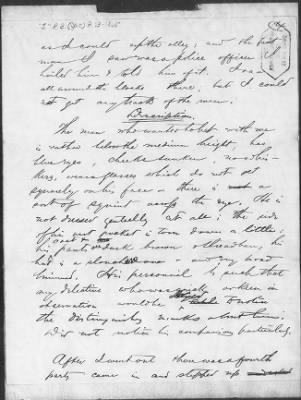 as I could up the alley; and the first
man I saw was a police officer. I
hailed him & told him of it. I ran
all around the there, but I could
not get any track of the men.
Description.
The man who wanted to bet with me
is rather below the medium height, has
blue eyes, cheeks sunken, no
wears glasses which do not set
squarely on his face & there is a
sort of squint across the eye. He is
not dressed genteelly at all; the side
of his coat pocket is torn down a little;
his pants dark brown otherwise; he
had is a slouched one and very broad
brimmed. His personnel is such that
any detective who was in
observation would be able to notice
the distinguishing marks about him.
Did not notice his companion particularly.
After I went out there was a fourth
party came in and stepped up